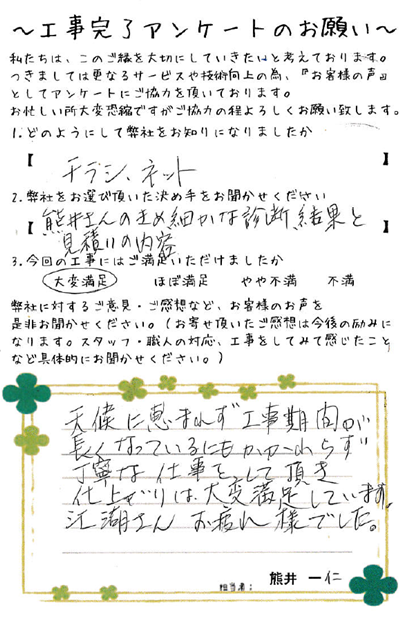 ～工事完了アンケートのお願い～
私たちは、このご縁を大切にしていきたいと考えております。
つきましては更なるサービスや技術向上の為、『お客様の声』
としてアンケートにご協力を頂いております。
お忙しい所大変恐縮ですがご協力の程よろしくお願い致します。
1.どのようにして弊社をお知りになりましたか
【 チラシ、ネット 】
2.弊社をお選び頂いた決め手をお聞かせください
【 熊井さんのきめ細かな診断結果と
見積りの内容 】
3.今回の工事にはご満足いただけましたか
大変満足 ほぼ満足 やや不満 不満
弊社に対するご意見・ご感想など、お客様のお声を
是非お聞かせください。(お寄せ頂いたご感想は今後の励みに
なります。スタッフ・職人の対応、工事をしてみて感じたこと
など具体的にお聞かせください。)
天候に恵まれず工事期間が
長くなっているにもかかわらず
丁寧な仕事をして頂き
仕上がりは大変満足しています。
江湖さん お疲れ様でした。
担当者: 熊井 一仁